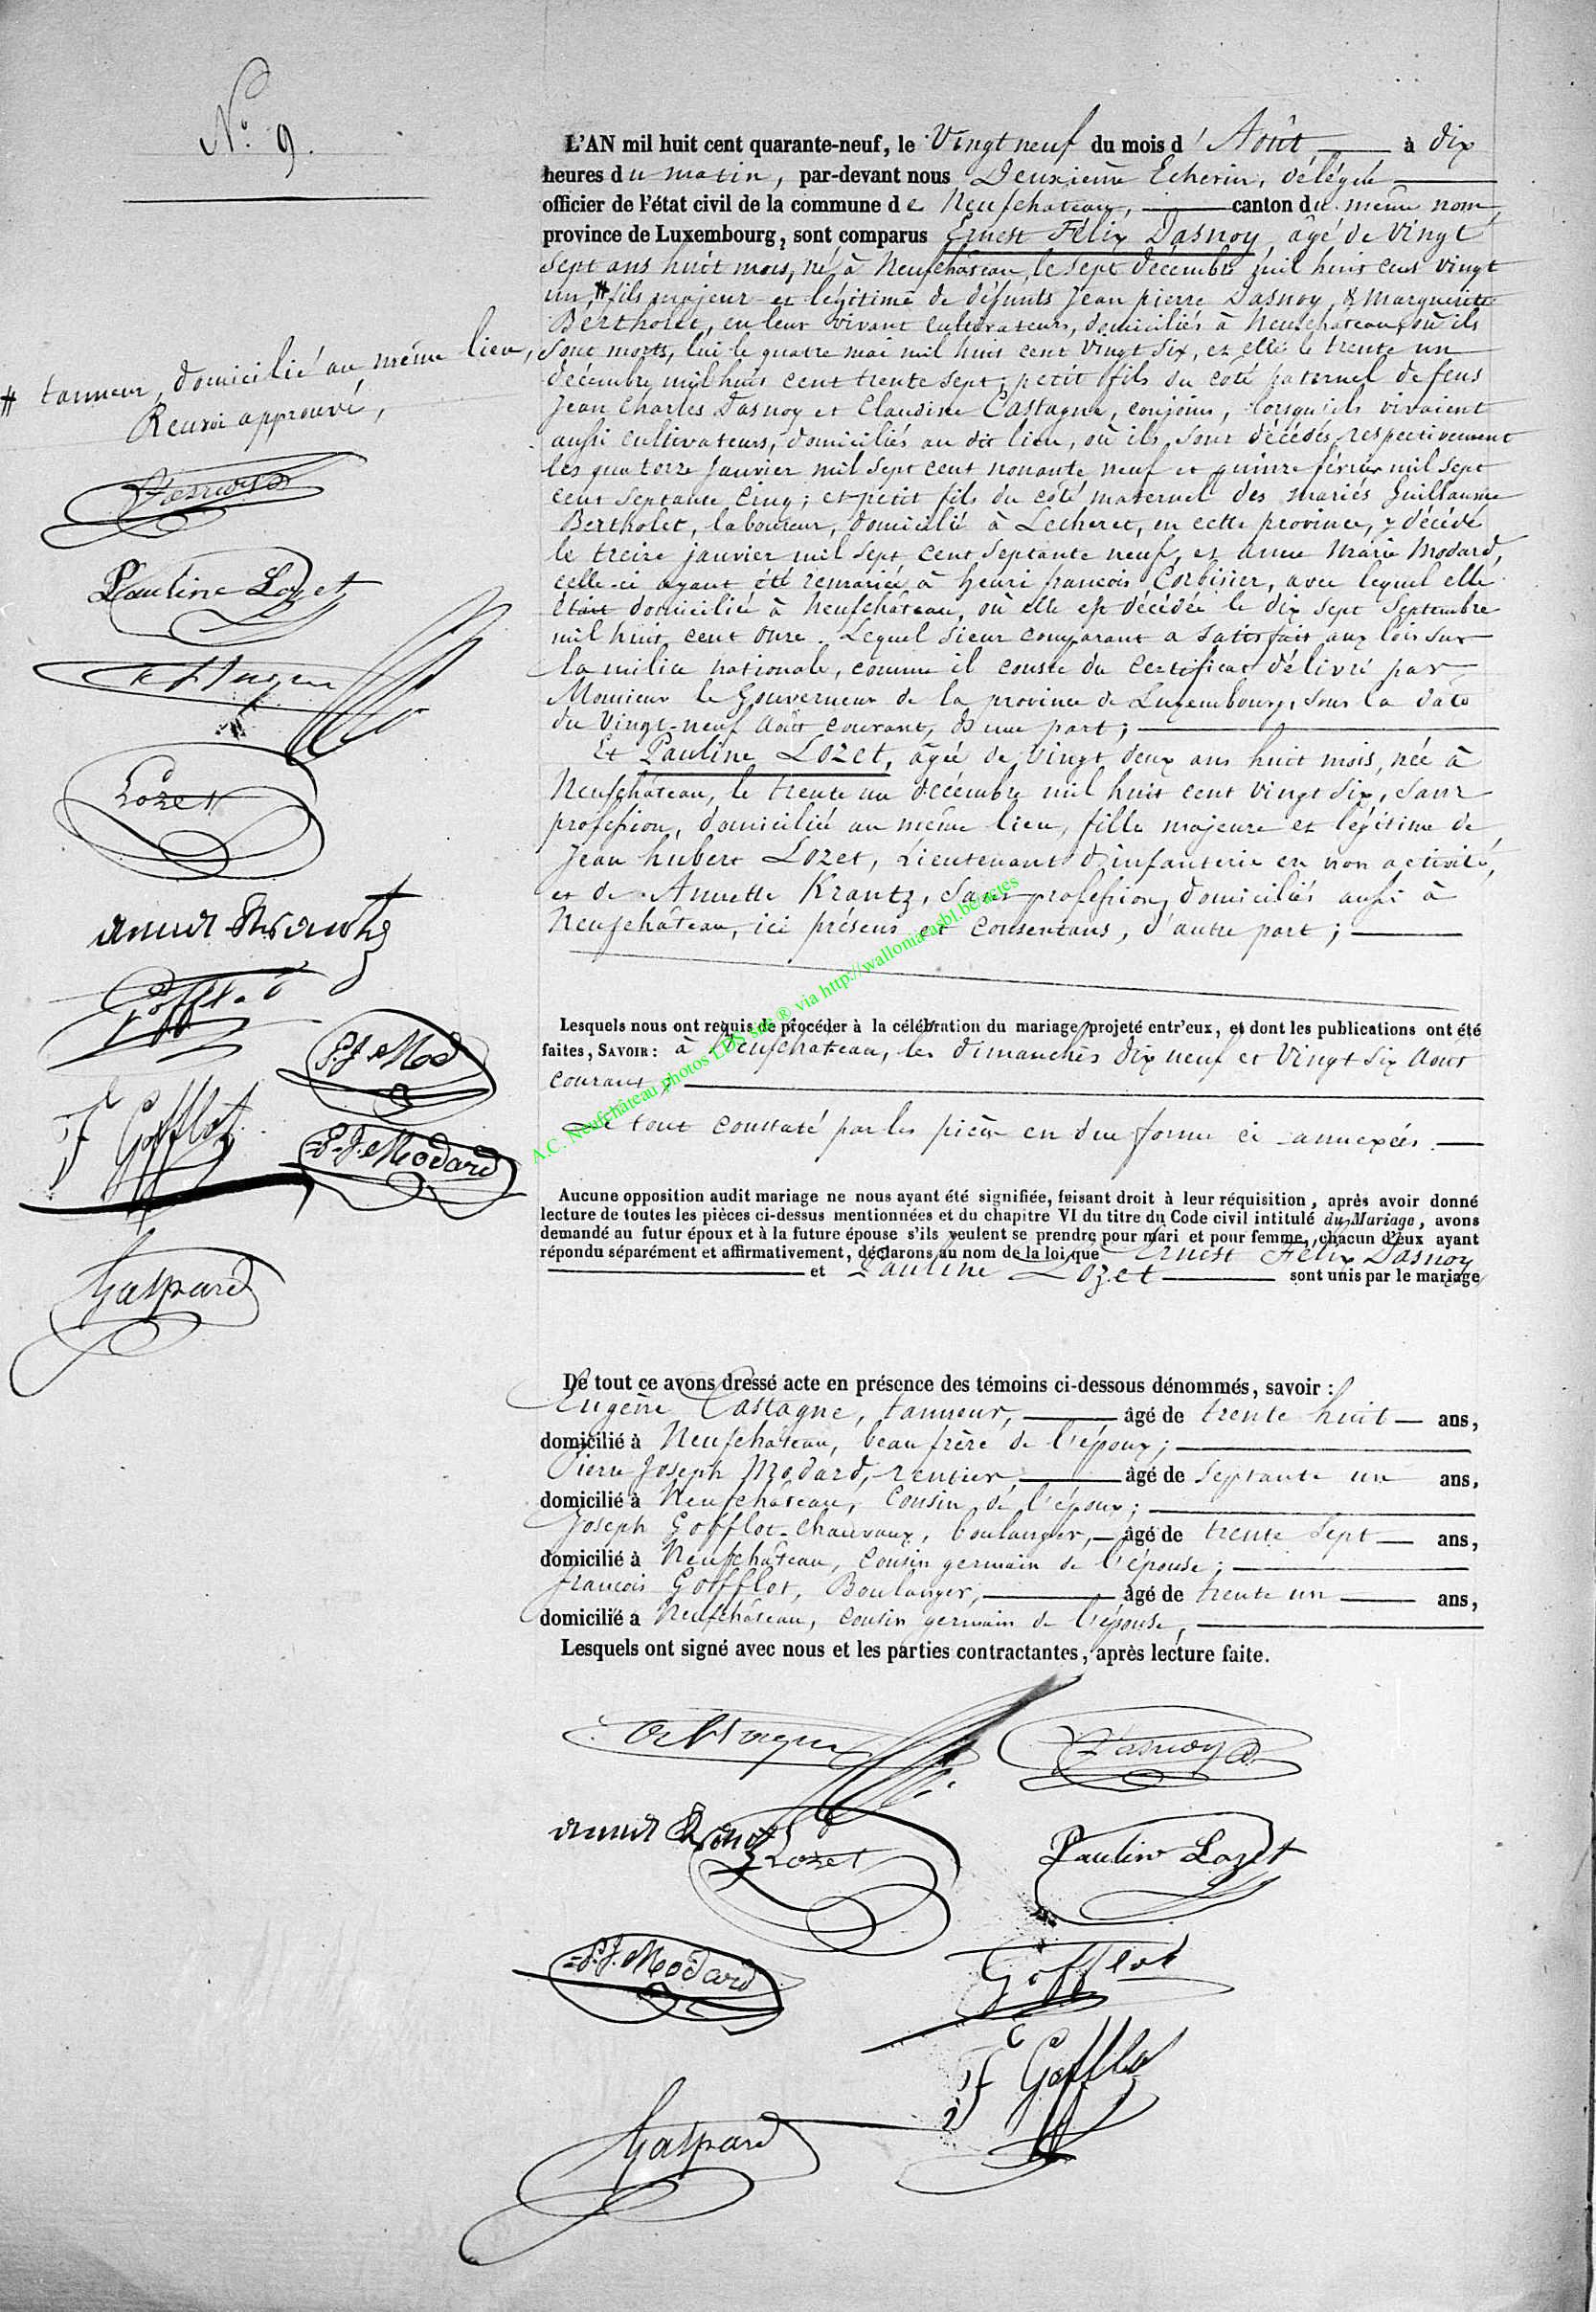 N° 9.
L'AN mil huit cent quarante-neuf, le Vingt neuf du mois d'Août à dix
heures du matin, par-devant nous Deuxième Echevin, délégué
officier de l'état civil de la commune de Neufchateau, canton du même nom,
province de Luxembourg, sont comparus Ernest Félix Dasnoy, âgé de Vingt
sept ans huit mois, né à Neufchâteau, le sept décembre mil huit cent vingt
un, # fils majeur et légitime de défunts Jean pierre Dasnoy, & Marguerite
Bertholet, en leur vivant cultivateurs, domiciliés à Neufchâteau, où ils
sont morts, lui le quatre mai mil huit cent vingt six, et elle le trente un
décembre mil huit cent trente sept; petit fils du coté paternel de feus
Jean Charles Dasnoy et Claudine Castagne, conjoins, lorsqu'ils vivaient
aussi cultivateurs, domiciliés au dit lieu, où ils sont décédés respectivement
les quatorze Janvier mil sept cent nonante neuf et quinze février mil sept
cent septante cinq; et petit fils du côté maternel des mariés Guillaume
Bertholet, laboureur, domicilié à Lecheret, en cette province, y décédé
le treize janvier mil sept cent septante neuf, et anne Marie Modard,
celle-ci ayant été remariée à henri françois Corbisier, avec lequel elle
était domiciliée à Neufchâteau, où elle est décédée le dix sept Septembre
mil huit cent onze. Lequel sieur comparant a satisfait aux lois sur
la milice nationale, comme il conste du certificat délivré par
Monsieur le Gouverneur de la province de Luxembourg, sous la date
du Vingt-neuf Août courant, d'une part;
Et Pauline Lozet, âgée de Vingt deux ans huit mois, née à
Neufchâteau, le trente un décembre mil huit cent vingt six, sans
profession, domiciliée au même lieu, fille majeure et légitime de
Jean hubert Lozet, Lieutenant d'infanterie en non activité,
et de Annette Krantz, sans profession, domiciliés aussi à
Neufchâteau, ici présens et consentans, d'autre part;
# tanneur, domicilié au même lieu,
Renvoi approuvé,
Dasnoy
Pauline Lozet
Lozet
annet Krantz
Gofflot
P.J. Mod
F Gofflot
P.J. Modard
Gaspard
Lesquels nous ont requis de procéder à la célébration du mariage projeté entr'eux, et dont les publications ont été
faites, SAVOIR: à Neufchateau, les dimanches dix neuf et Vingt six Aout
courant,
Le tout constaté par les pièces en due forme ci-annexées.
Aucune opposition audit mariage ne nous ayant été signifiée, feisant droit à leur réquisition, après avoir donné
lecture de toutes les pièces ci-dessus mentionnées et du chapitre VI du titre du Code civil intitulé du Mariage, avons
demandé au futur époux et à la future épouse s'ils veulent se prendre pour mari et pour femme, chacun d'eux ayant
répondu séparément et affirmativement, déclarons au nom de la loi que Ernest Félix Dasnoy
et Pauline Lozet sont unis par le mariage
De tout ce avons dressé acte en présence des témoins ci-dessous dénommés, savoir:
Eugène Castagne, tanneur, âgé de trente huit ans,
domicilié à Neufchâteau, beau frère de l'époux;
Pierre Joseph Modard, rentier, âgé de septante un ans,
domicilié à Neufchâteau, cousin de l'époux;
Joseph Gofflot-Chauvaux, boulanger, âgé de trente sept ans,
domicilié à Neufchâteau, cousin germain de l'épouse;
françois Gofflot, Boulanger, âgé de trente un ans,
domicilié a Neufchâteau, cousin germain de l'épouse,
Lesquels ont signé avec nous et les parties contractantes, après lecture faite.
Dasnoy
annet Krantz
Lozet
Pauline Lozet
P.J. Modard
Gofflot
F Gofflot
Gaspard
A.C. Neufchâteau photos LDS site ® via http://wallonia-asbl.be/actes